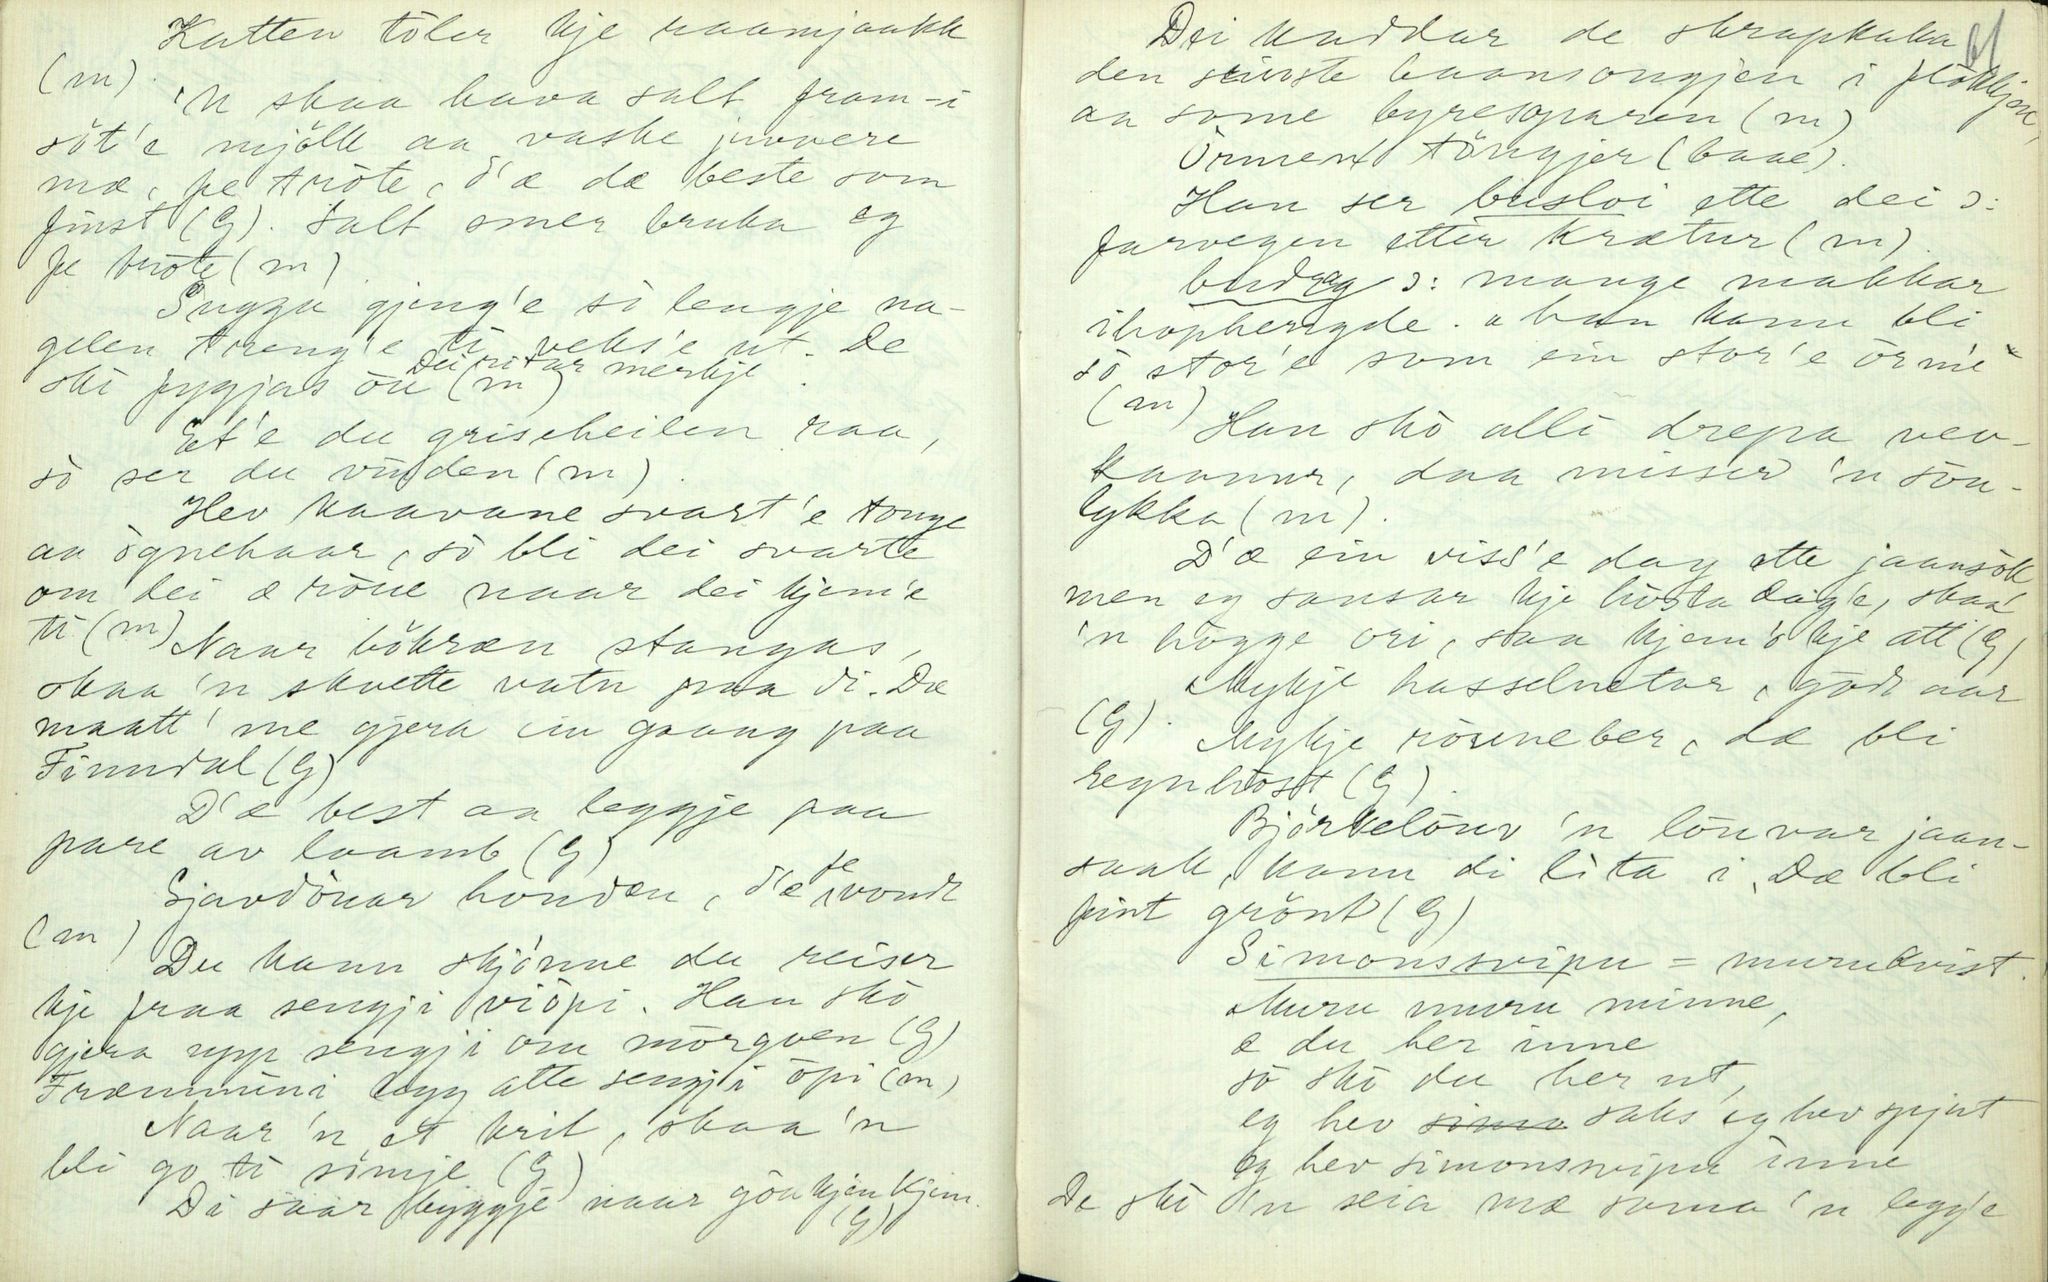 Katten töler kje raamjaakk
(m).
'n skaa hava salt fram-i
söt'e mjölk aa vaske juvere
mæ, fe tröte, d'æ dæ beste som
finst (G). Salt smer bruka eg
fe tröte (m)
Sugga gjeng'e sö lengje na-
gelen treng'e ti veks'e ut. De
skö fygjas öu (m)
Et'e du griseheilen raa,
sö ser du vinden (m).
Hev kaavane svart'e tonge
aa ögnehaar, sö bli dei svarte
om dei æ röue naar dei kjem'e
ti (m)
Naar bökræn stangas,
skaa 'n skvette vatn paa di. Dæ
maatt' me gjera ein gaang paa
Finndal (G)
D'æ best aa leggje paa
pare av laamb (G)
Sjavdöuar hondæn, d'æ fe vondt
(m)
Du kann skjönne du reiser
kje fraa sengji viöpi. Han skö
gjera upp sengji om mörgoen (G)
Fræmmuni legg atte sengji öpi (m)
Naar 'n et krit, skaa 'n
bli go ti söngje (G)
Di saar byggje naar göukjen kjem.
(G)
61
Dei kaddar de skrapkaka
den siuste baansongjen i flökkjen,
aa some byresparen (m)
Örmen töngjer (baae).
Han ser busloi ette dei ɔ:
farvegen etter krætur (m)
budrog ɔ: mange makkar
ihophengde. han kann bli
sö stor'e som ein stor'e örm'e
(m)
Han skö alli drepa vev-
kaanur, daa misser 'n söu-
lykka (m).
D'æ ein viss'e dag ette jaansök
men eg sansar kje kosta dag'e, skaa
'n högge ori, saa kjem'o kje att (G)
Mykje hasselnetar, godt aar
(G).
Mykje röuneber, dæ bli
regnhöst (G).
Björkelöuv 'n löuvar jaan-
saak, kann di lita i. Dæ bli
fint grönt (G)
Simonssvipu = murukvist.
Muru muru minne,
æ du her inne
sö skö du her ut,
eg hev saks' eg hev spjut
eg hev simonssvipu inne
De skö 'n seia mæ soma 'n legg'e